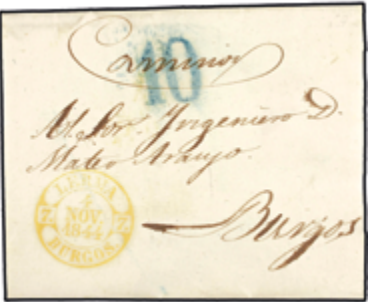 10
Caminos
Al Sor. Yngeniero D.
Mateo Araujo.
LERMA
4
NOV.
1844
BURGOS.
Burgos